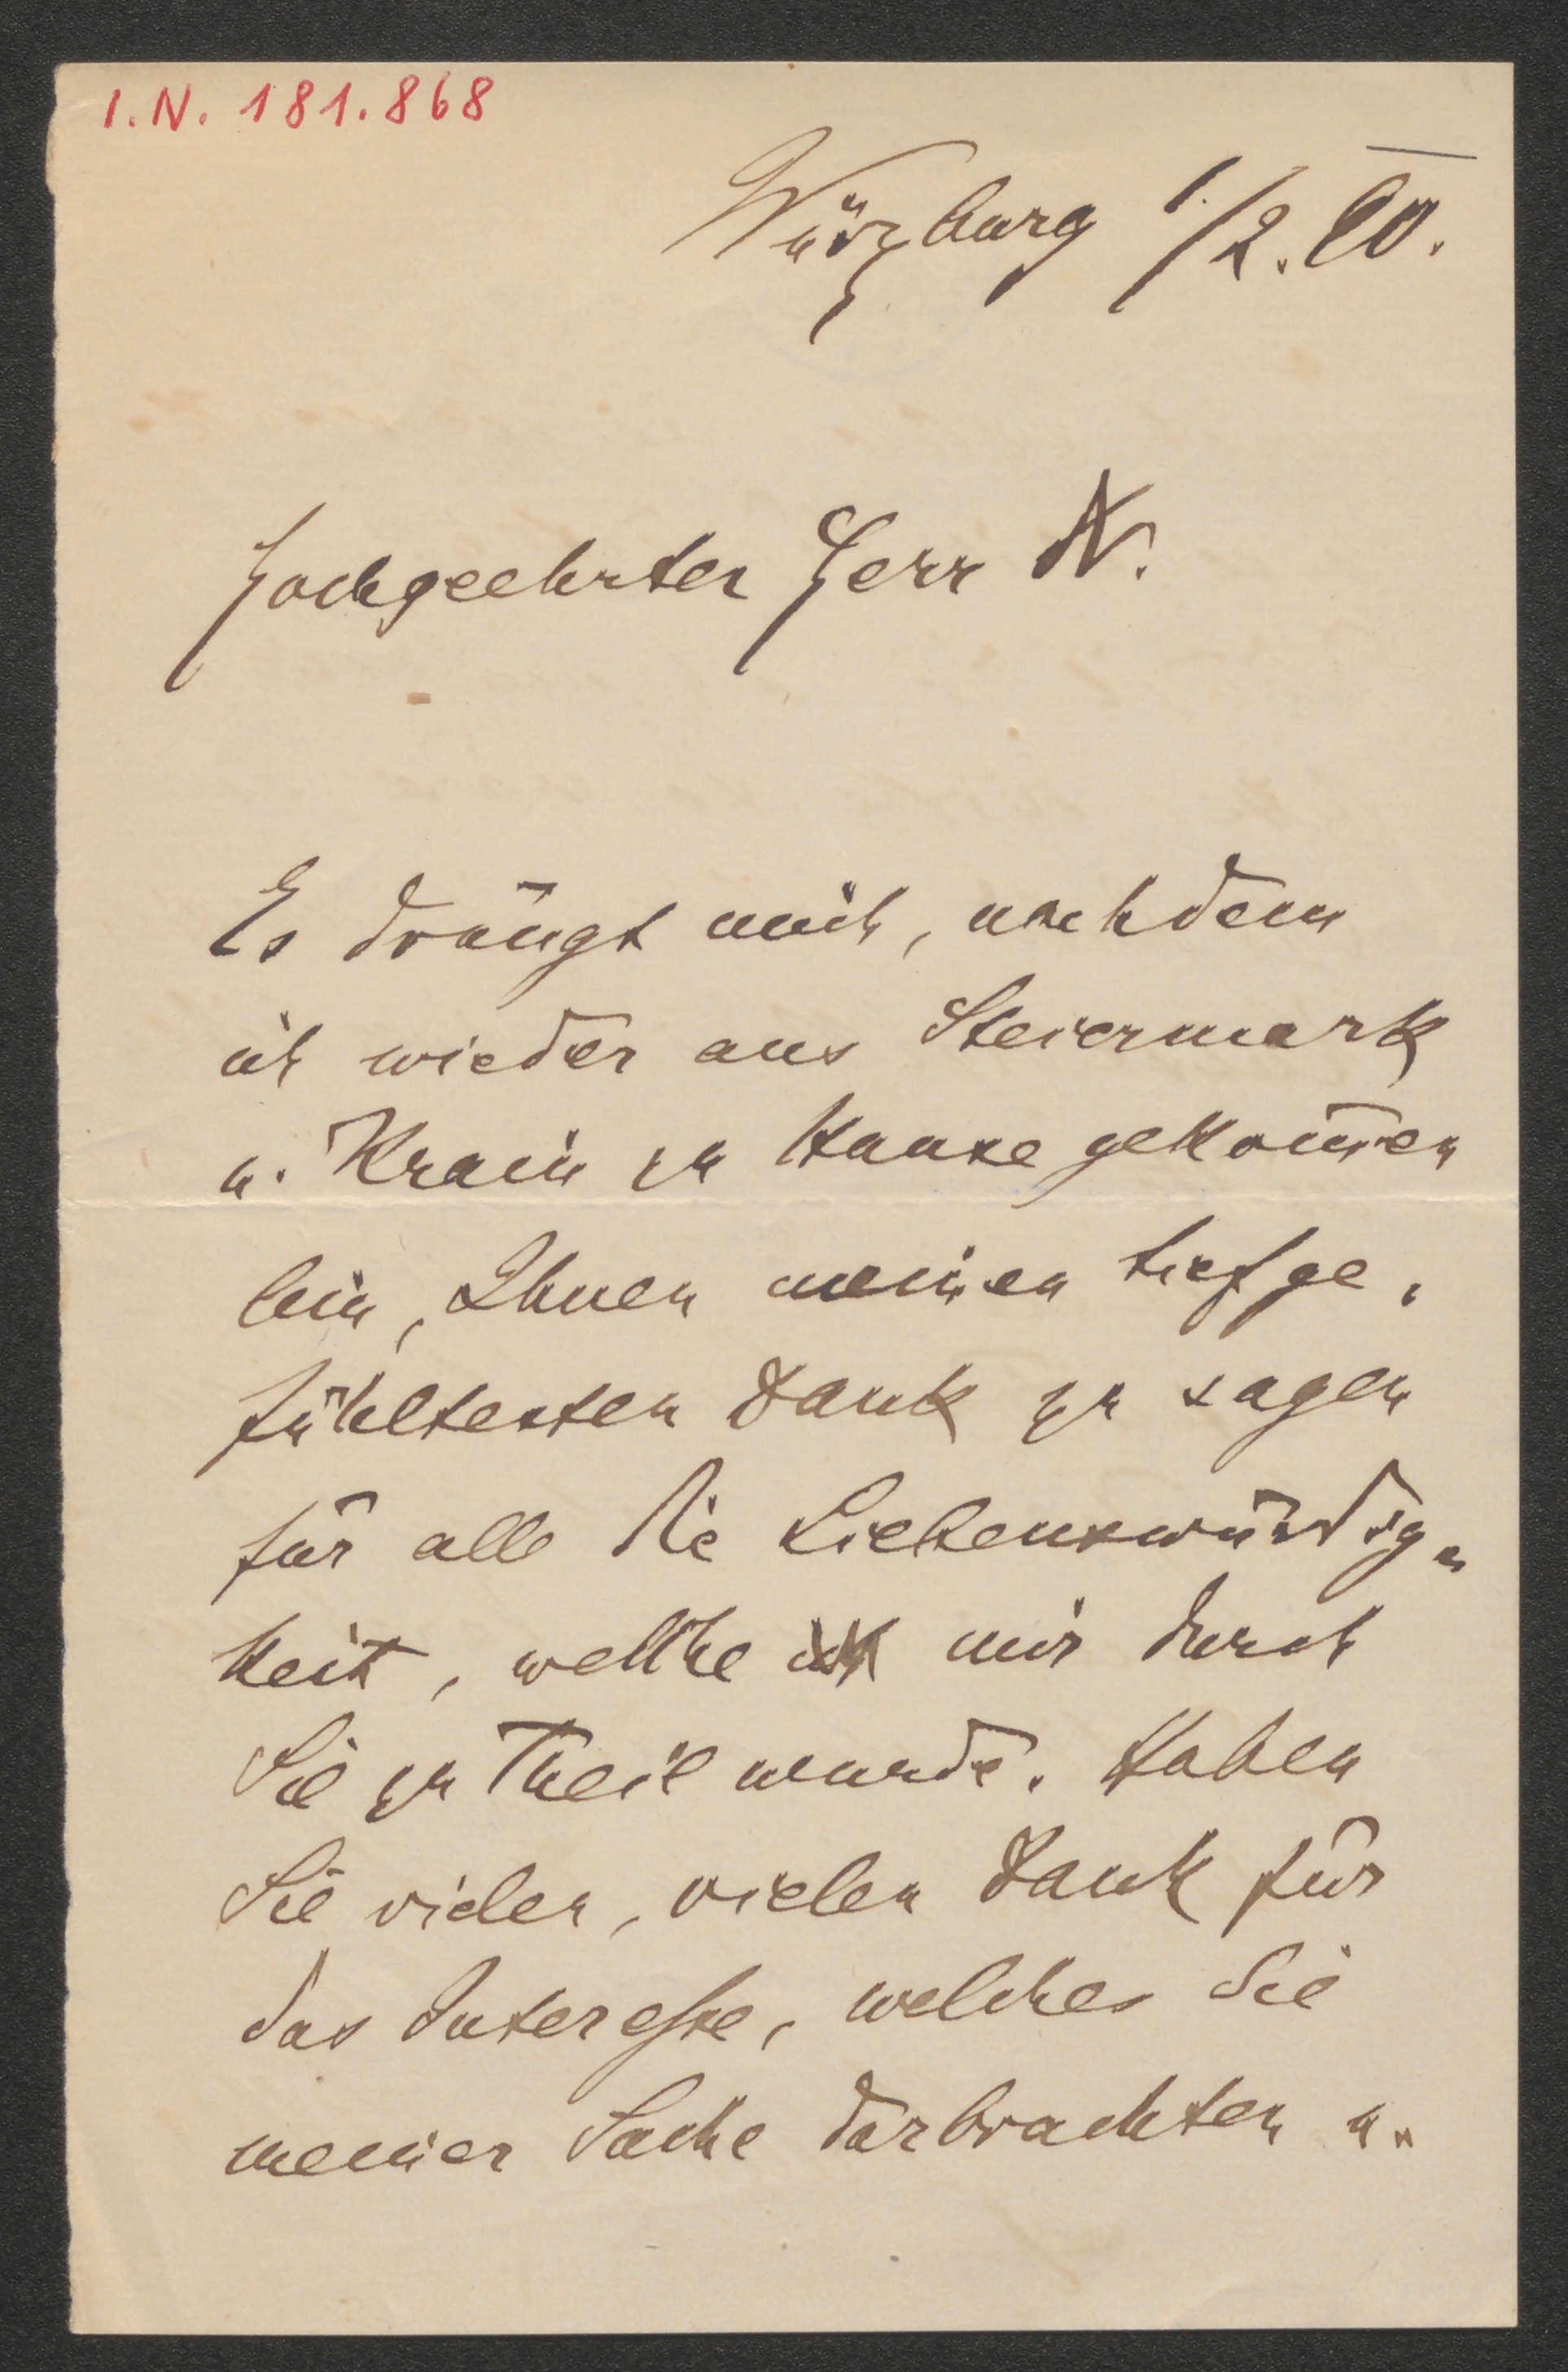 I.N. 181.868
Würzburg 1./2. 90.
Hochgeehrter Herr N.
Es drängt mich, nachdem
ich wieder aus Steiermark
u. Krain zu Hause gekom̅en
bin, Ihnen meinen tiefge-
fühltesten Dank zu sagen
für alle die Liebenswürdig-
keit, welche mir durch
Sie zu Theil wurde. Haben
Sie vielen, vielen Dank für
das Interesse, welches Sie
meiner Sache darbrachten u.